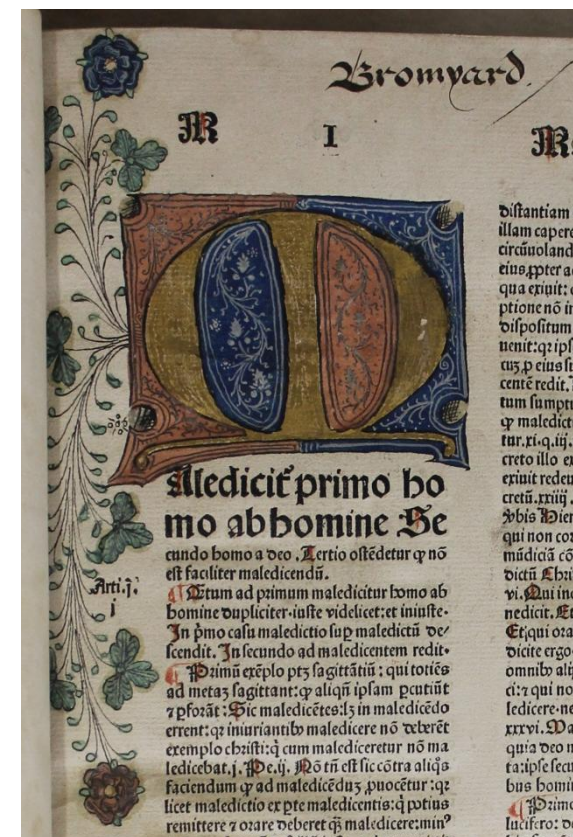 Bromyard.
M I Ma
Maledicit᷑ primo ho
mo ab homine Se
cundo homo a deo . Tertio ostẽdetur ꝙ nõ
est faciliter maledicendũ.
Arti.j.
i
¶ Q̃tum ad primum maledicitur homo ab
homine dupliciter.iuste videlicet: et iniuste.
In pͥmo casu maledictio suꝑ maledictũ de/
scendit. In secundo ad maledicentem redit.
¶ Primũ exẽplo ptꝫ sagittãtiũ : qui totiẽs
ad metaꝫ sagittant: ꝙ aliqñ ipsam ꝑcutiũt
⁊ ꝑforãt : Sic maledicẽtes: lꝫ in maledicẽdo
errent: qꝛ iniuriantibꝰ maledicere nõ deberẽt
exemplo christi: q̇ cum malediceretur nõ ma
ledicebat.j. Pe.ij. Nõ tñ est sic cõtra aliq̃s
faciendum ꝙ ad maledicẽduꝫ ꝓuocẽtur : qꝛ
licet maledictio ex ꝑte maledicentis: q̇ potius
remittere ⁊ orare deberet q̃ꝫ maledicere: min⁹
distantiam
illam capere
circũuoland
eius, ꝓpter a
qua exiuit:
ptione nõ in
dispositum
uenit: qꝛ ips
cuꝫ ꝑ eius su
centẽ redit.
tum sumptu
ꝙ maledict
tur.xi.q.iij.
creto illo ex
exiuit redeu
cretũ.xxiiij.
ꝟbis Hier
qui non cor
mũdiciã cõ
dictũ Chri
vi. Qui inc
nedicit. Et
Et; qui ora
dicite ergo
omnibꝰ aliq
ci: ⁊ qui no
ledicere. ne
xxxvi. Ma
quia deo n
ta: ipse secu
bus homin
¶ Primo
lucifero: de